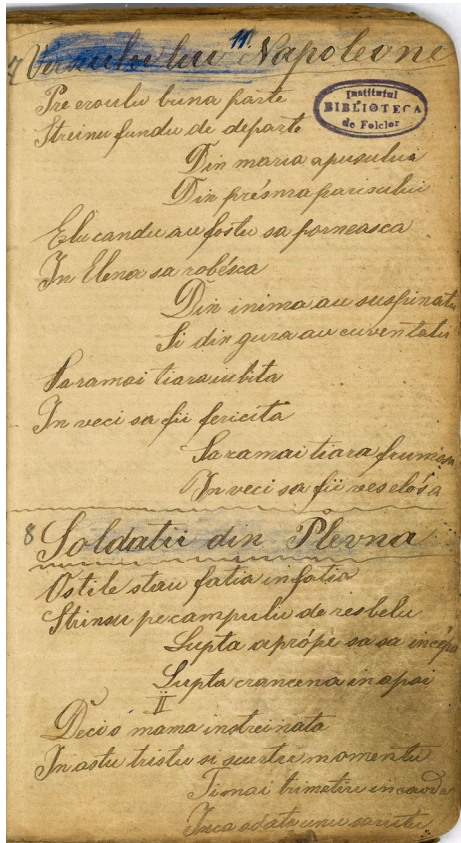 11.
7 Versulu lui Napoleone
Institutul
BIBLIOTECA
de Folclor
Pre eroulu buna parte
Streinu fundu de departe
Din maria apusului
Din présma parisului
Elu candu au fostu sa porneasca
In Elena sa robésca
Din inima au suspinatu
Si din gura au cuventatu
Saramai tiara iubita
In veci sa fii fericita
Saramai tiara frumosa
In veci sa fii veselósa
8 Soldatii din Plevna
Ostile stau fatia in fatia
Strinsu pe campulu de resbelu
Lupta aprópe sa sa incépa
Lupta crancena in apoi
II
Deci o mama instreinata
In astu tristu si scurtu momentu
Ti mai trimetiu in
Inca odata unu sarutu